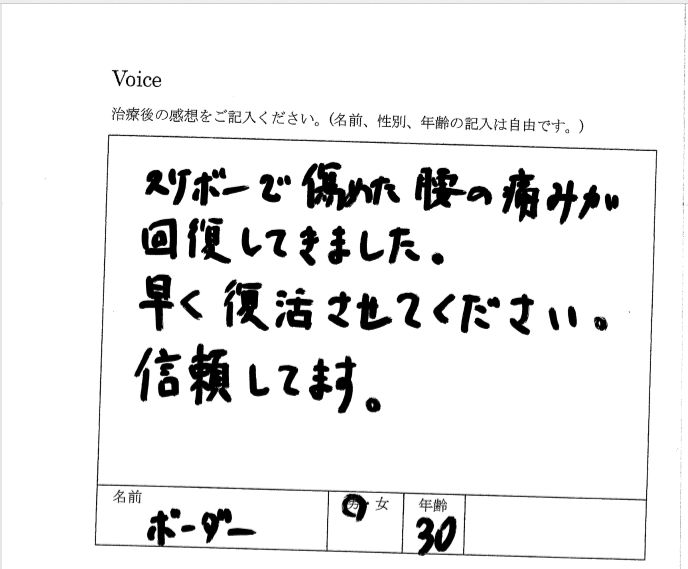 Voice
治療後の感想をご記入ください。(名前、性別、年齢の記入は自由です。)
スノボーで傷めた腰の痛みが
回復してきました。
早く復活させてください。
信頼してます。
名前 男・女 年齢
ボーダー 30